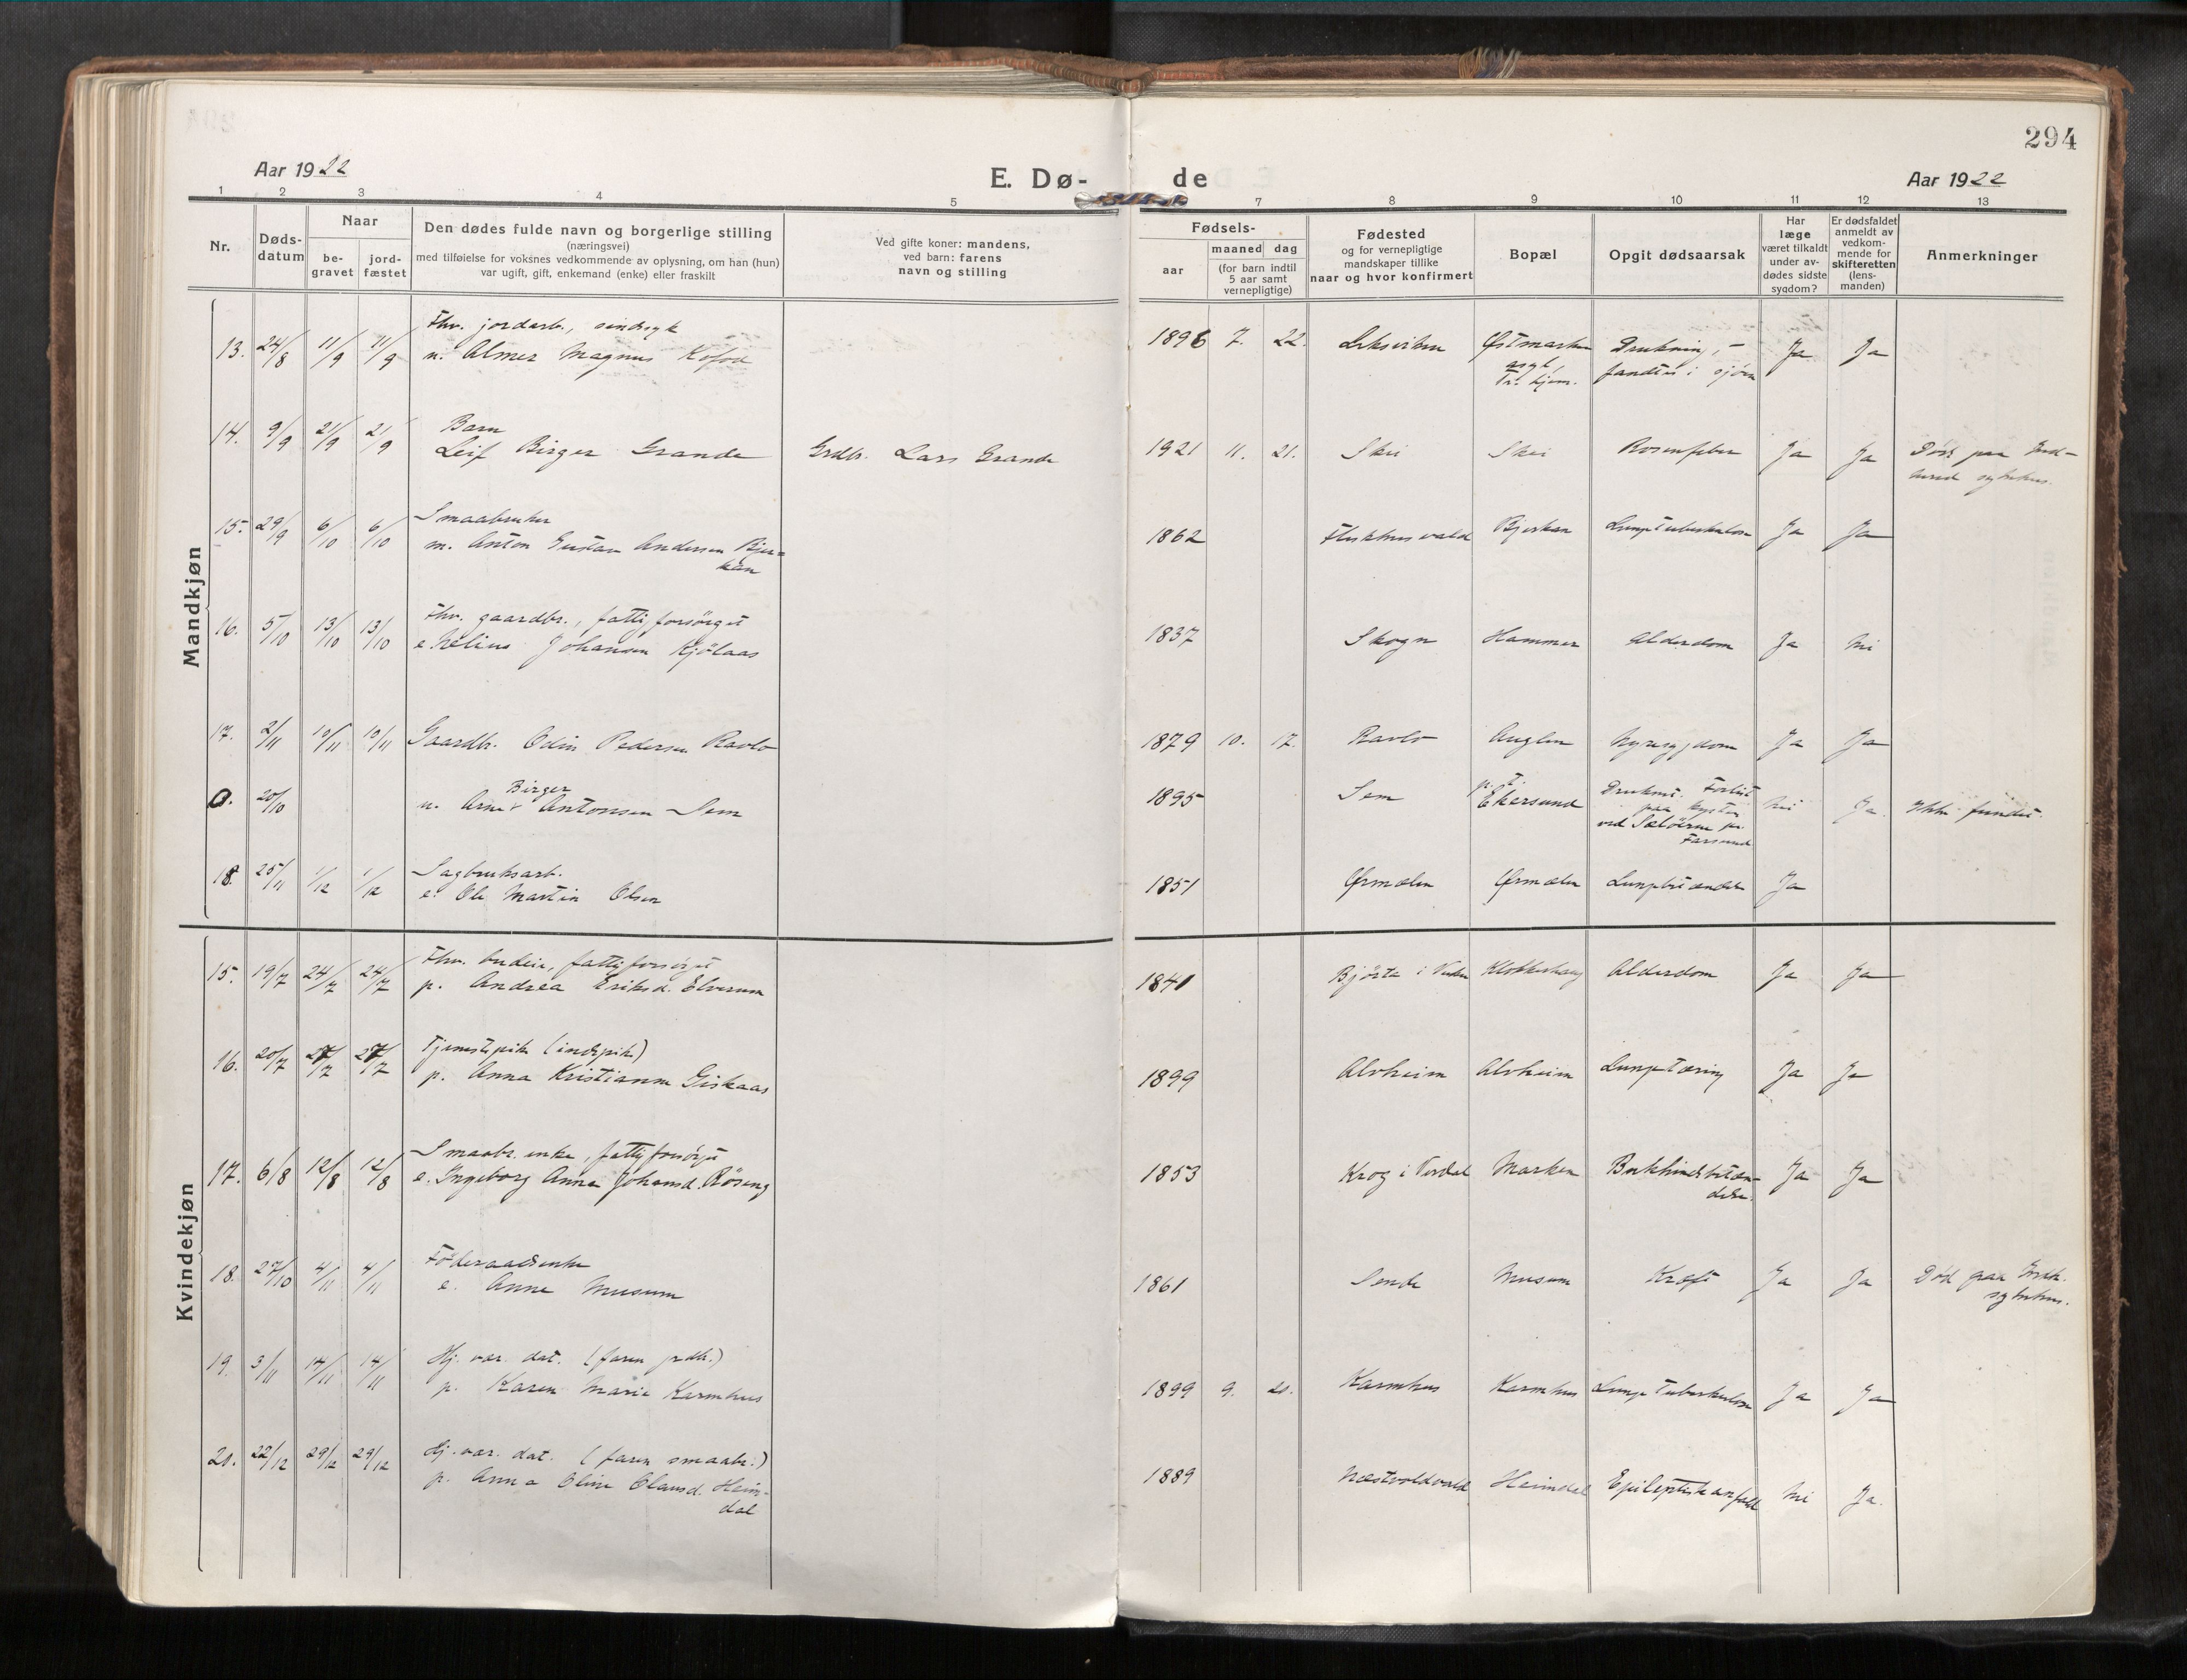 294
Aar 1922
E. Dø-
de
Aar 1922
1 2 3 4 5 7 8 9 10 11 12 13
Nr.
Døds-
datum
Naar
be-
gravet
jord-
fæstet
Den dødes fulde navn og borgerlige stilling
(næringsvei)
med tilføielse for voksnes vedkommende av oplysning, om han (hun)
var ugift, gift, enkemand (enke) eller fraskilt
Ved gifte koner: mandens,
ved barn: farens
navn og stilling
Fødsels-
aar
maaned dag
(for barn indtil
5 aar samt
vernepligtige)
Fødested
og for vernepligtige
mandskaper tillike
naar og hvor konfirmert
Bopæl
Opgit dødsaarsak
Har
læge
været tilkaldt
under av-
dødes sidste
sygdom?
Er dødsfaldet
anmeldt av
vedkom-
mende for
skifteretten
(lens-
manden)
Anmerkninger
Mandkjøn
Fhv. jordarb., sindssyk
13. 24/8 11/9 11/9 u. Almer Magnus Kofod 1896 7. 22. Leksviken Østmarken Drukning, – Ja Ja
asyl, fandtes i sjøen
Tr.hjem.
Barn
14. 9/9 21/9 21/9 Leif Birger Grande Grdbr. Lars Grande 1921 11. 21. Skei Skei Rosenfeber Ja Ja Død paa Ind-
herred sykehus.
Smaabruker
15. 29/9 6/10 6/10 m. Anton Gustav Andersen Bjer= 1862 Bjerkan Lungetuberkulose Ja Ja
kan
Fhv. gaardbr., fattigforsörget
16. 5/10 13/10 13/10 e. Johansen Kjölaas 1837 Skogn Hammer Alderdom Ja Nei
17. 2/11 10/11 10/11 Gaardbr. Odin Pedersen Ravlo 1879 10. 17. Ravlo Auglen Nyresygdom Ja Ja
Birger
0. 20/10 u. Arne Antonsen Sem 1895 Sem p.t. Ekersund Druknet. Forlist Nei Ja. Ikke fundet.
paa kysten
ved Selöerne pr.
Farsund
Sagbruksarb.
18. 25/11 1/12 1/12 e. Ole Martin Olsen 1851 Ørmelen Ørmelen Lungebetændelse Ja
Kvindekjøn
Fhv. budeie, fattigforsörget
15. 19/7 24/7 24/7 p. Andrea Eriksd. Elverum 1841 Bjørta i Vuku Klokkerhaug Alderdom Ja Ja
Tjenestepike (indepike)
16. 20/7 27/7 27/7 p. Anna Kristianne Giskaas 1899 Alvheim Alvheim Lungetæring Ja Ja
Smaabr.enke, fattigforsörget
17. 6/8 12/8 12/8 e. Ingeborg Anna Johansd. Röseng 1853 Krog i Verdal Marken Bukhindebetæn- Ja Ja
delse.
Föderaadsenke
18. 27/10 4/11 4/11 e. Anne Musum 1861 Sende Musum Kræft Ja Ja Död paa Indh.
sykehus.
Hj. vær. dat. (faren grdb.)
19. 3/11 14/11 14/11 p. Karen Marie Karmhus 1899 9. 20. Karmhus Karmhus Lungetuberkulose Ja Ja
Hj. vær. dat. (faren smaabr.)
20. 22/12 29/12 29/12 p. Anna Oline Olausd. Heim- 1889 Næstvoldvald Heimdal Epileptisk anfald Nei Ja.
dal